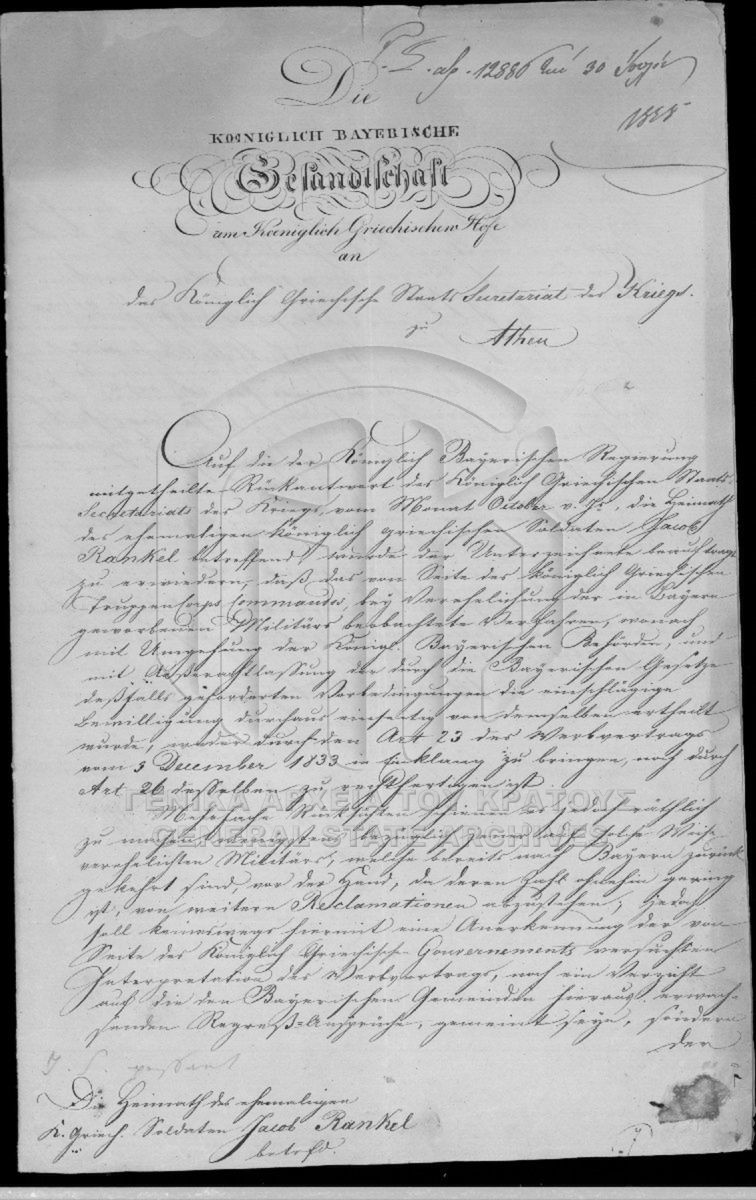 Die
12880 30
KŒNIGLICH BAYERISCHE
Gesandtschaft
am Kœniglich Griechischen Hofe
an
das Königlich Griechische Staats Secretariat des Kriegs.
zu Athen
Auf die der Königlich Bayerischen Regierung
mitgetheilte Rückantwort des Königlich Griechischen Staats-
Secretariats des Kriegs, vom Monat October v. Js., die Heimath
des ehemaligen königlich griechischen Soldaten Jacob
Rankel betreffend, wurde der Unterzeichnete beauftragt
zu erwiedern, daß das von Seite des königlich Griechischen
Truppen Corps Commandos, bey Verehelichung der in Bayern
geworbenen Militärs beobachtete Verfahren, wonach
mit Umgehung der Königl. Bayerischen Behörden, und
mit Außerachtlassung der durch die Bayerischen Gesetze
deßfalls geforderten Vorbedingungen die einschlägige
Bewilligung durchaus einseitig von demselben ertheilt
wurde, weder durch den Art 23 des Werbvertrags
vom 3 December 1833 in Einklang zu bringen, noch durch
Art. 26 desselben zu rechtfertigen ist
ΓΕΝΙΚΑ ΑΡΧΕΙΑ ΤΟΥ ΚΡΑΤΟΥΣ
Mehrfache Rücksichten scheinen es jedoch räthlich
GENERAL STATE ARCHIVES
zu machen wenigstens bezüglich der auf solche Weise
verehelichten Militärs, welche bereits nach Bayern zurück
gekehrt sind, vor der Hand, da deren Zahl ohnehin gering
ist, von weitern Reclamationen abzustehen; jedoch
soll keineswegs hiermit eine Anerkennung der von
Seite des Königlich Griechischen Gouvernements versuchten
Interpretation des Werbvertrags, noch ein Verzicht
auf die den Bayerischen Gemeinden hieraus erwach-
senden Regreß-Ansprüche, gemeint seyn, sondern
der
Die Heimath des ehemaligen
K. Griech. Soldaten Jacob Rankel
betrfd.